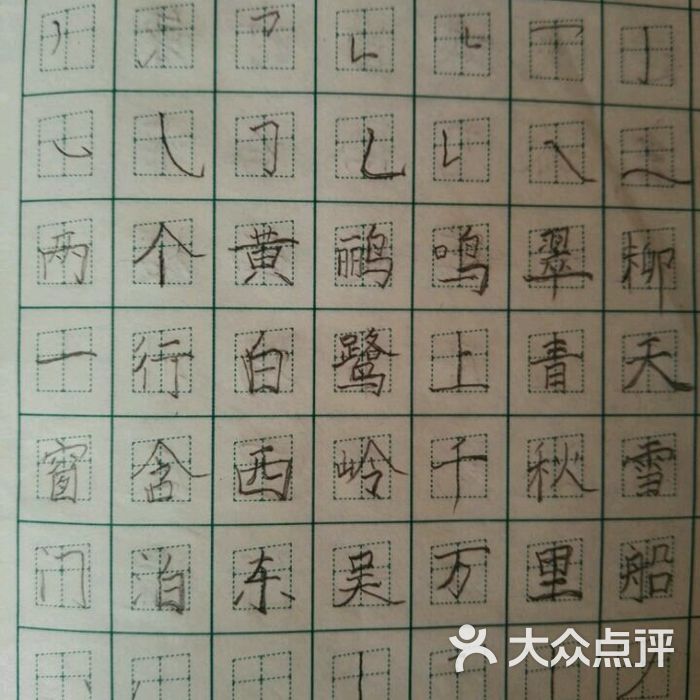 两个黄鹂鸣翠柳
一行白鹭上青天
窗含西岭千秋雪
门泊东吴万里船
大众点评